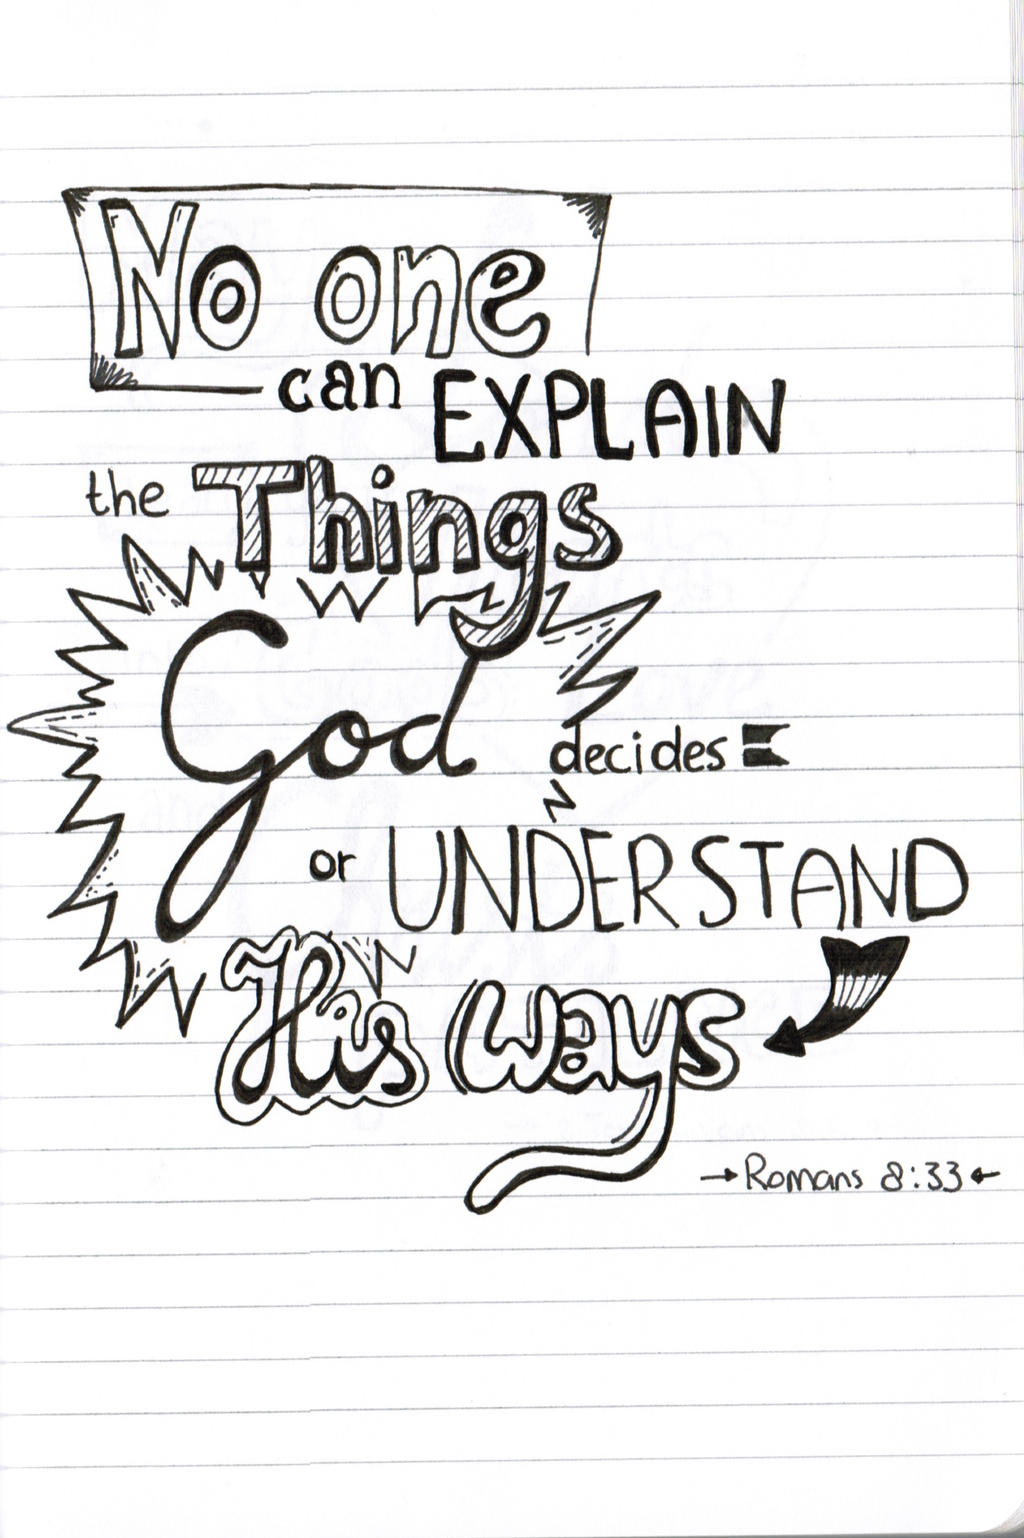 No one
can EXPLAIN
the Things
God decides
or UNDERSTAND
His ways
Romans 8:33